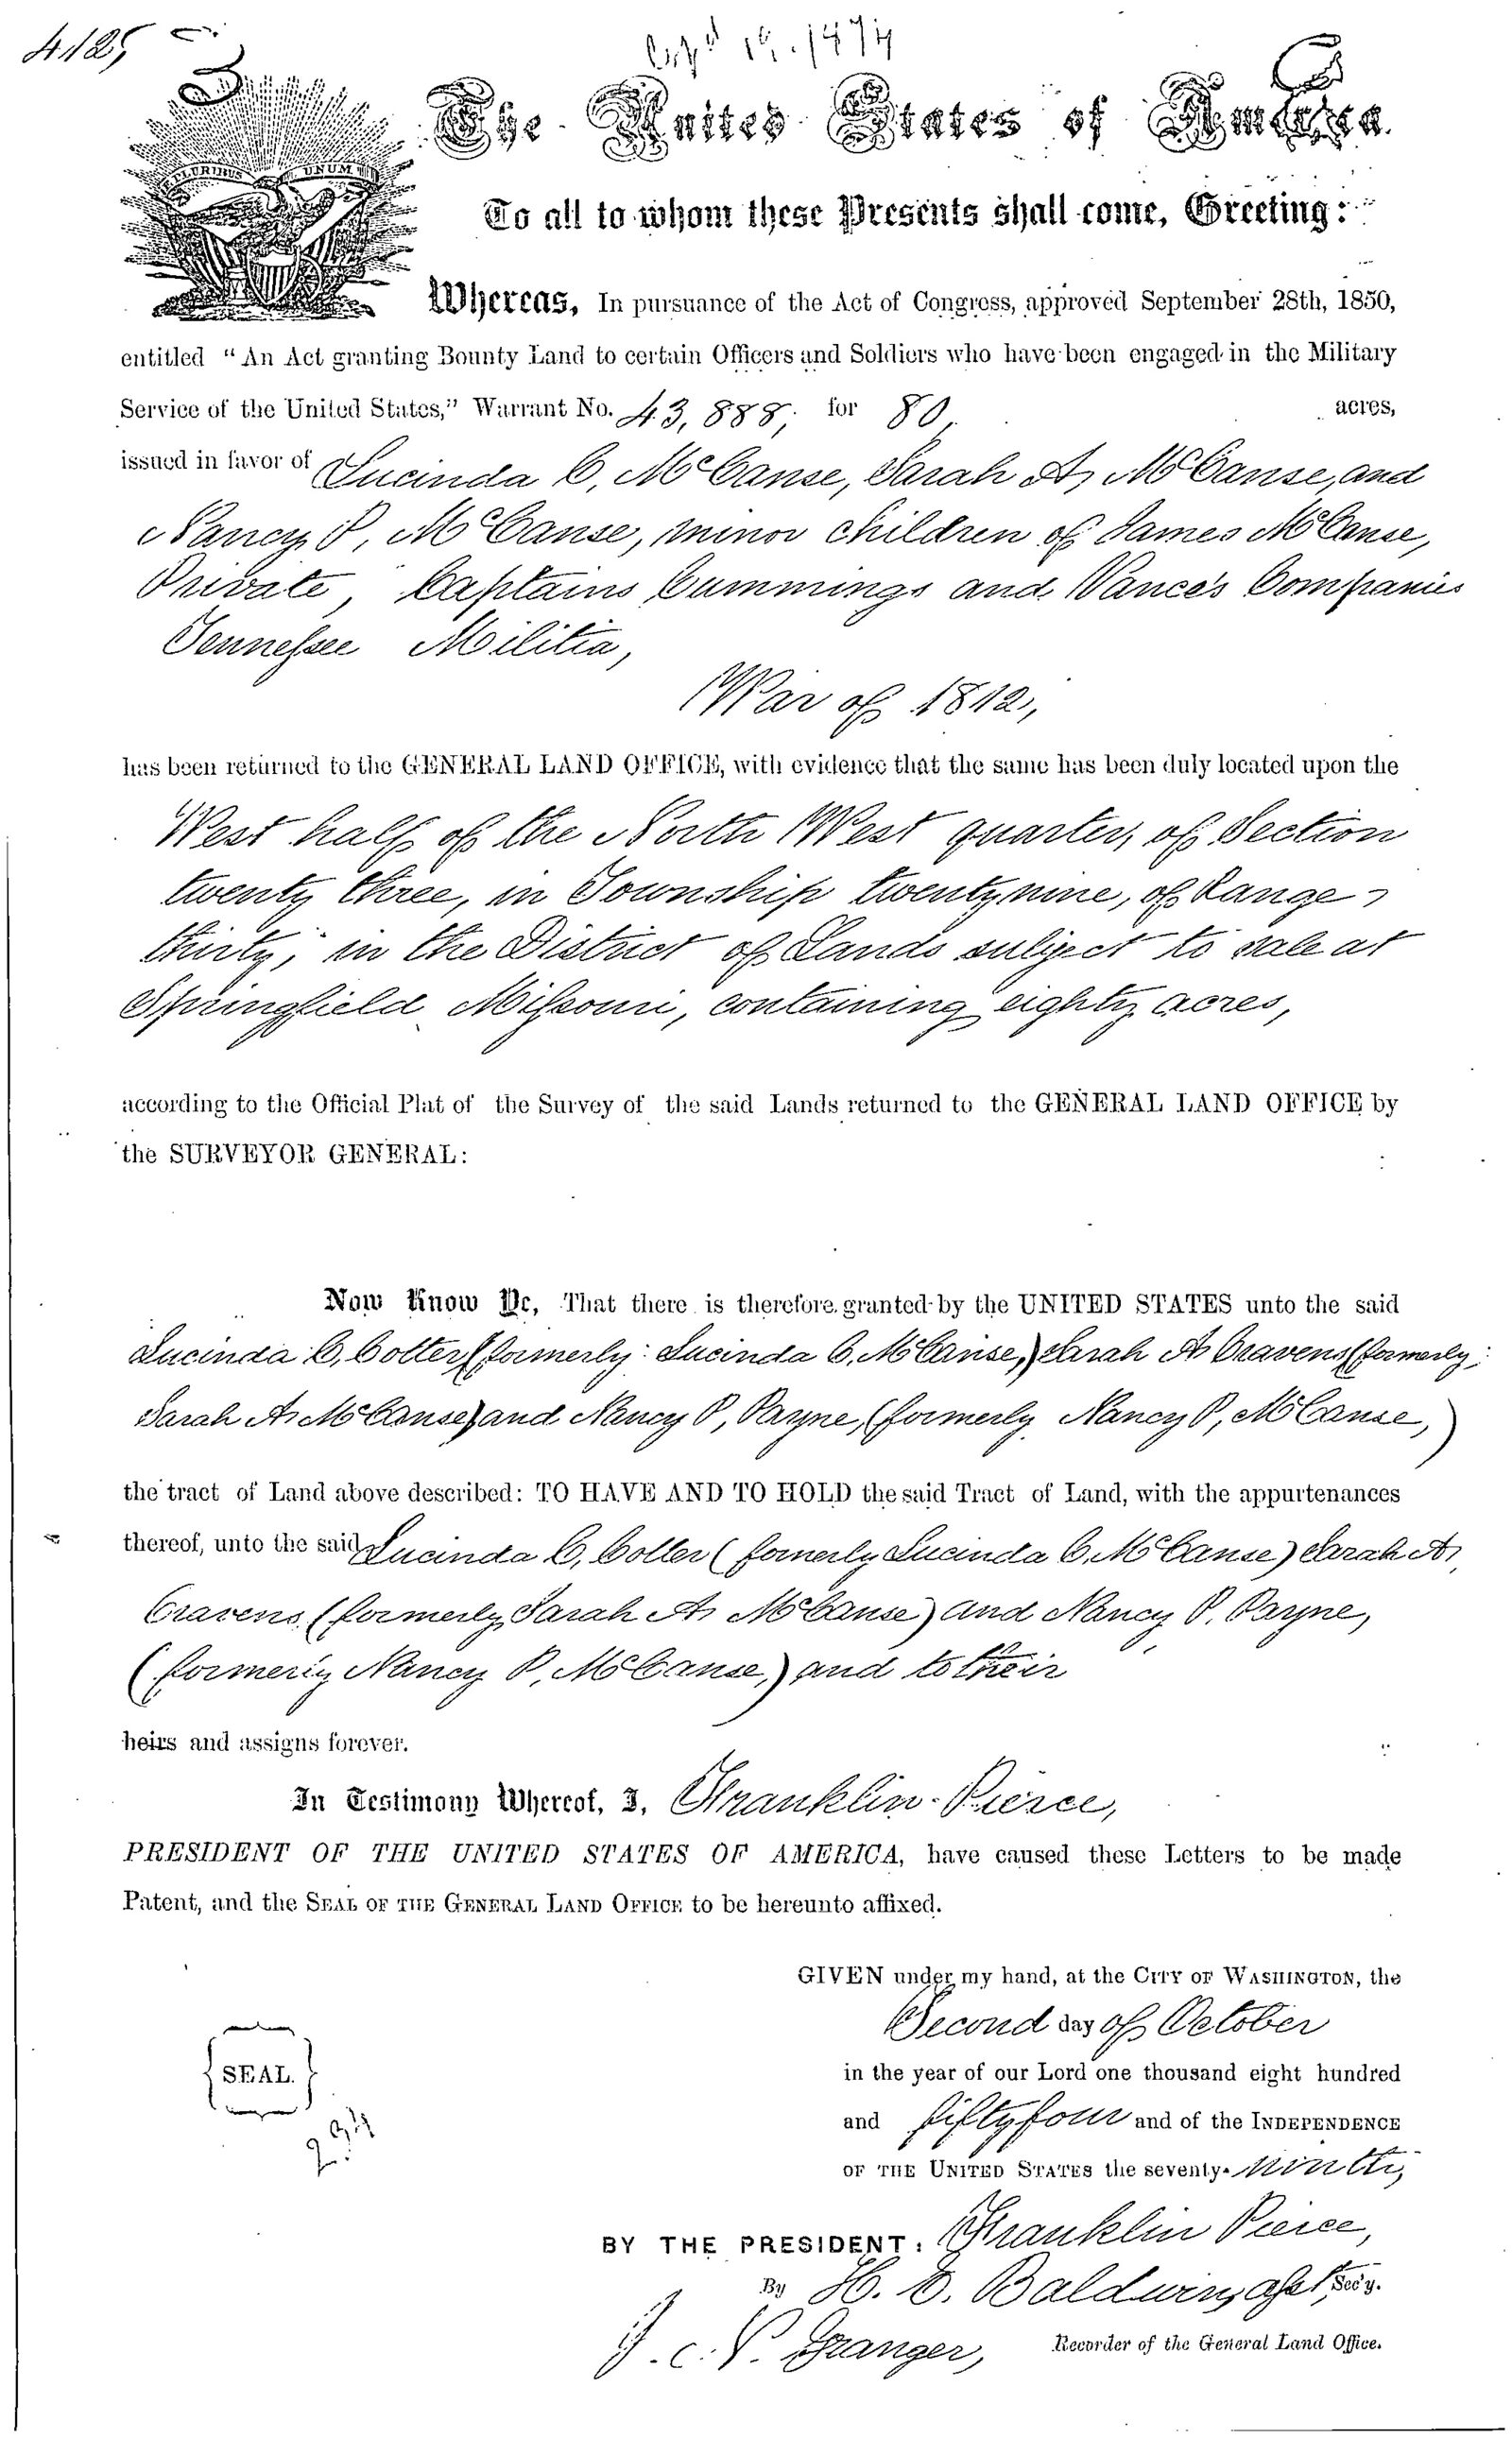 4125
1874
The United States of America.
E PLURIBUS UNUM
To all to whom these Presents shall come, Greeting:
Whereas, In pursuance of the Act of Congress, approved September 28th, 1850,
entitled "An Act granting Bounty Land to certain Officers and Soldiers who have been engaged in the Military
Service of the United States," Warrant No. 43,888, for 80 acres,
issued in favor of Lucinda C, McCanse, Sarah A, McCanse, and
Nancy P, McCanse, minor children of James McCanse,
Private, Captains Cummings and Vance's Companies
Tennessee Militia,
War of 1812,
has been returned to the GENERAL LAND OFFICE, with evidence that the same has been duly located upon the
West half of the North West quarter, of Section
twenty three, in Township twenty nine, of Range
thirty, in the District of Lands subject to sale at
Springfield Missouri, containing eighty acres,
according to the Official Plat of the Survey of the said Lands returned to the GENERAL LAND OFFICE by
the SURVEYOR GENERAL:
Now Know Ye, That there is therefore granted by the UNITED STATES unto the said
Lucinda C, Cotter (formerly Lucinda C, McCanse,) Sarah A Cravens (formerly
Sarah A, McCanse) and Nancy P, Payne, (formerly Nancy P, McCanse,)
the tract of Land above described: TO HAVE AND TO HOLD the said Tract of Land, with the appurtenances
thereof, unto the said Lucinda C, Cotter (formerly Lucinda C, McCanse) Sarah A,
Cravens, (formerly Sarah A, McCanse) and Nancy P. Payne,
(formerly Nancy P, McCanse,) and to their
heirs and assigns forever.
In Testimony Whereof, I, Franklin Pierce,
PRESIDENT OF THE UNITED STATES OF AMERICA, have caused these Letters to be made
Patent, and the SEAL OF THE GENERAL LAND OFFICE to be hereunto affixed.
GIVEN under my hand, at the CITY OF WASHINGTON, the
Second day of October
in the year of our Lord one thousand eight hundred
and fifty four and of the INDEPENDENCE
OF THE UNITED STATES the seventy-ninth,
SEAL.
BY THE PRESIDENT: Franklin Pierce,
By H. E. Baldwin, asst Sec'y.
J. N. Granger, Recorder of the General Land Office.